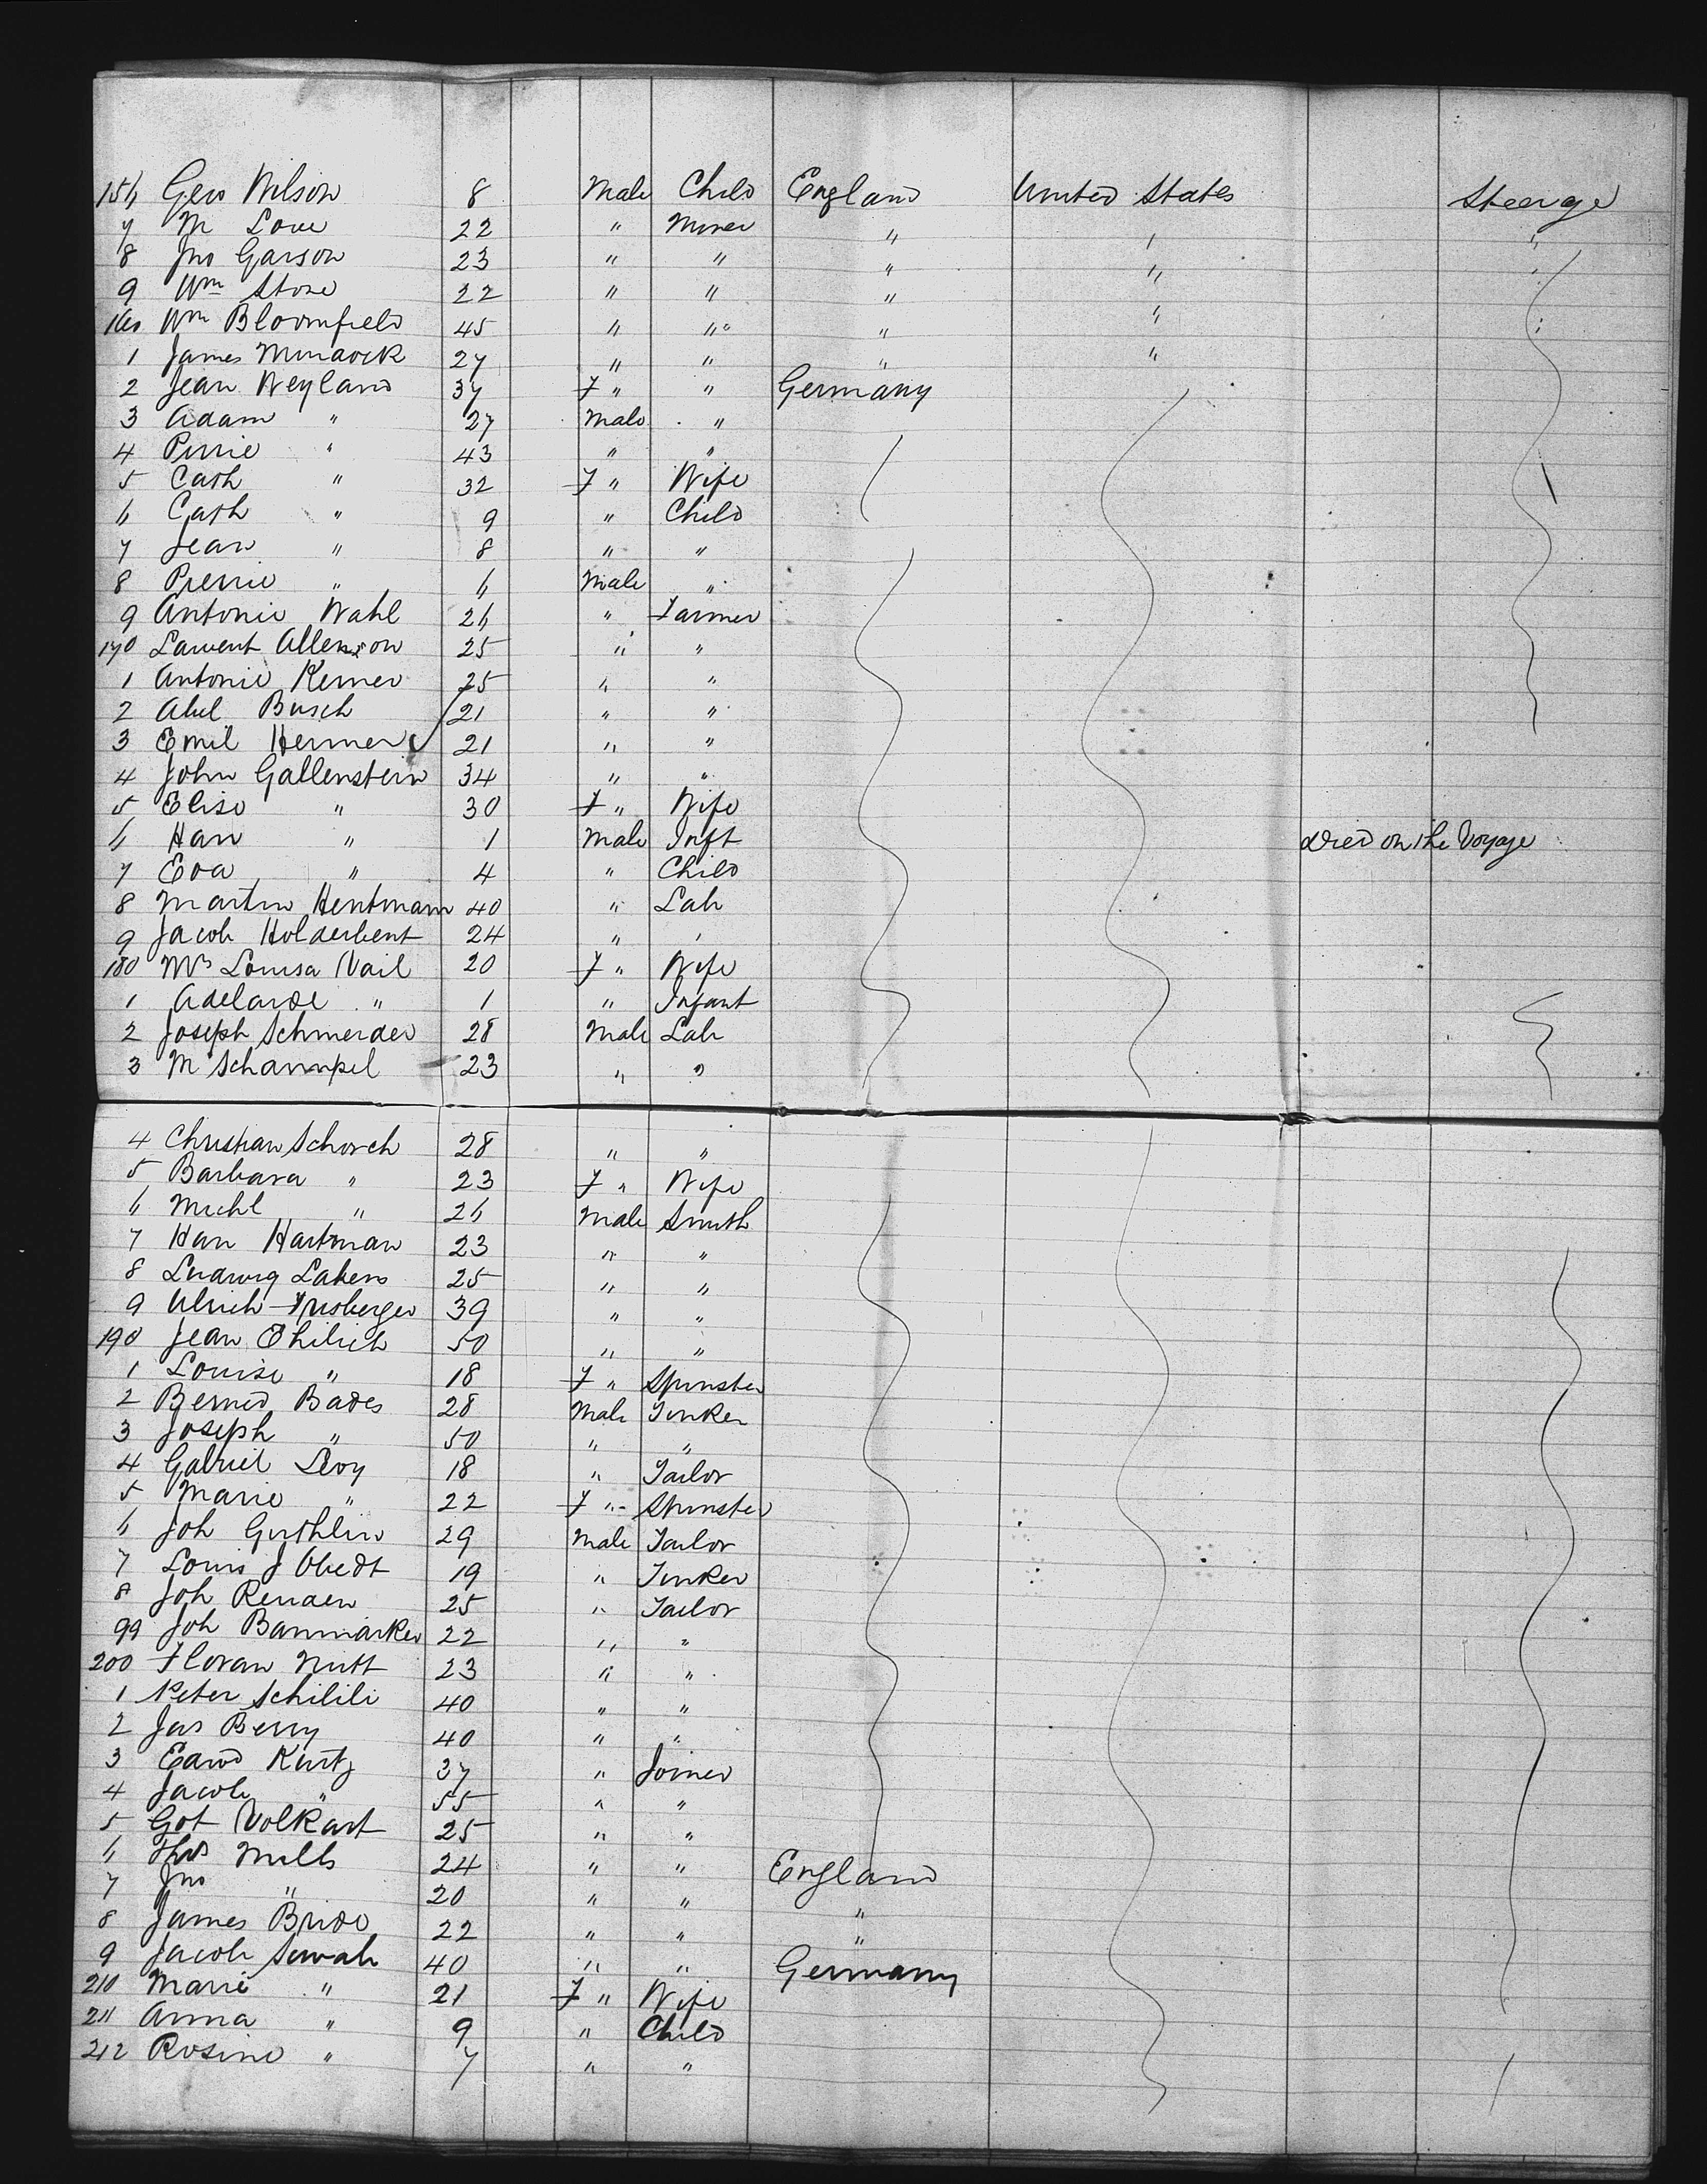 156 Geo Wilson 8 Male Child England United States Steerage
7 M Love 22 " Miner " " "
8 Jno Garson 23 " " " " "
9 Wm Stone 22 " " " "
160 Wm Bloomfield 45 " " " " "
1 James Murdock 27 " " " "
2 Jean Weyland 37 F " " Germany
3 Adam " 27 Male "
4 Pierrie " 43 " "
5 Cath " 32 F " Wife
6 Cath " 9 " Child
7 Jean " 8 " "
8 Pierrie " 6 Male "
9 Antonie Wahl 26 " Farmer
170 Laurent 25 " "
1 Antonie Kerner 25 " "
2 Abel Busch 21 " "
3 Emil Hermer 21 " "
4 John Gallenstein 34 " "
5 Elise " 30 F " Wife
6 Han " 1 Male Inft died on the Voyage
7 Eva " 4 " Child
8 Martin Hentmann 40 " Lab
9 Jacob Holderbent 24 " "
180 Mrs Louisa Vail 20 F " Wife
1 Adelaide " 1 " Infant
2 Joseph Schneider 28 Male Lab
3 M Schannpel 23 " "
4 Christian Schorch 28 " "
5 Barbara " 23 F " Wife
6 Michl " 26 Male Smith
7 Han Hartman 23 " "
8 Ludwig Lakens 25 " "
9 Ulrich Frisberger 39 " "
190 Jean Ehilich 50 " "
1 Louise " 18 F " Spinster
2 Bernd Bades 28 Male Tinker
3 Joseph " 50 " "
4 Gabriel Levy 18 " Tailor
5 Marie " 22 F " Spinster
6 Joh Guthlin 29 Male Tailor
7 Louis J Obedt 19 " Tinker
8 Joh 25 " Tailor
99 Joh Banmarker 22 " "
200 Floran Nutt 23 " "
1 Peter Schilili 40 " "
2 Jas Berry 40 " "
3 Edwd Kurtz 37 " Joiner
4 Jacob " 55 " "
5 Got Volkart 25 " "
6 Thos Mills 24 " " England
7 Jno " 20 " " "
8 James Bride 22 " " "
9 Jacob 40 " " Germany
210 Marie " 21 F " Wife
211 Anna " 9 " Child
212 Rosine " 7 " "